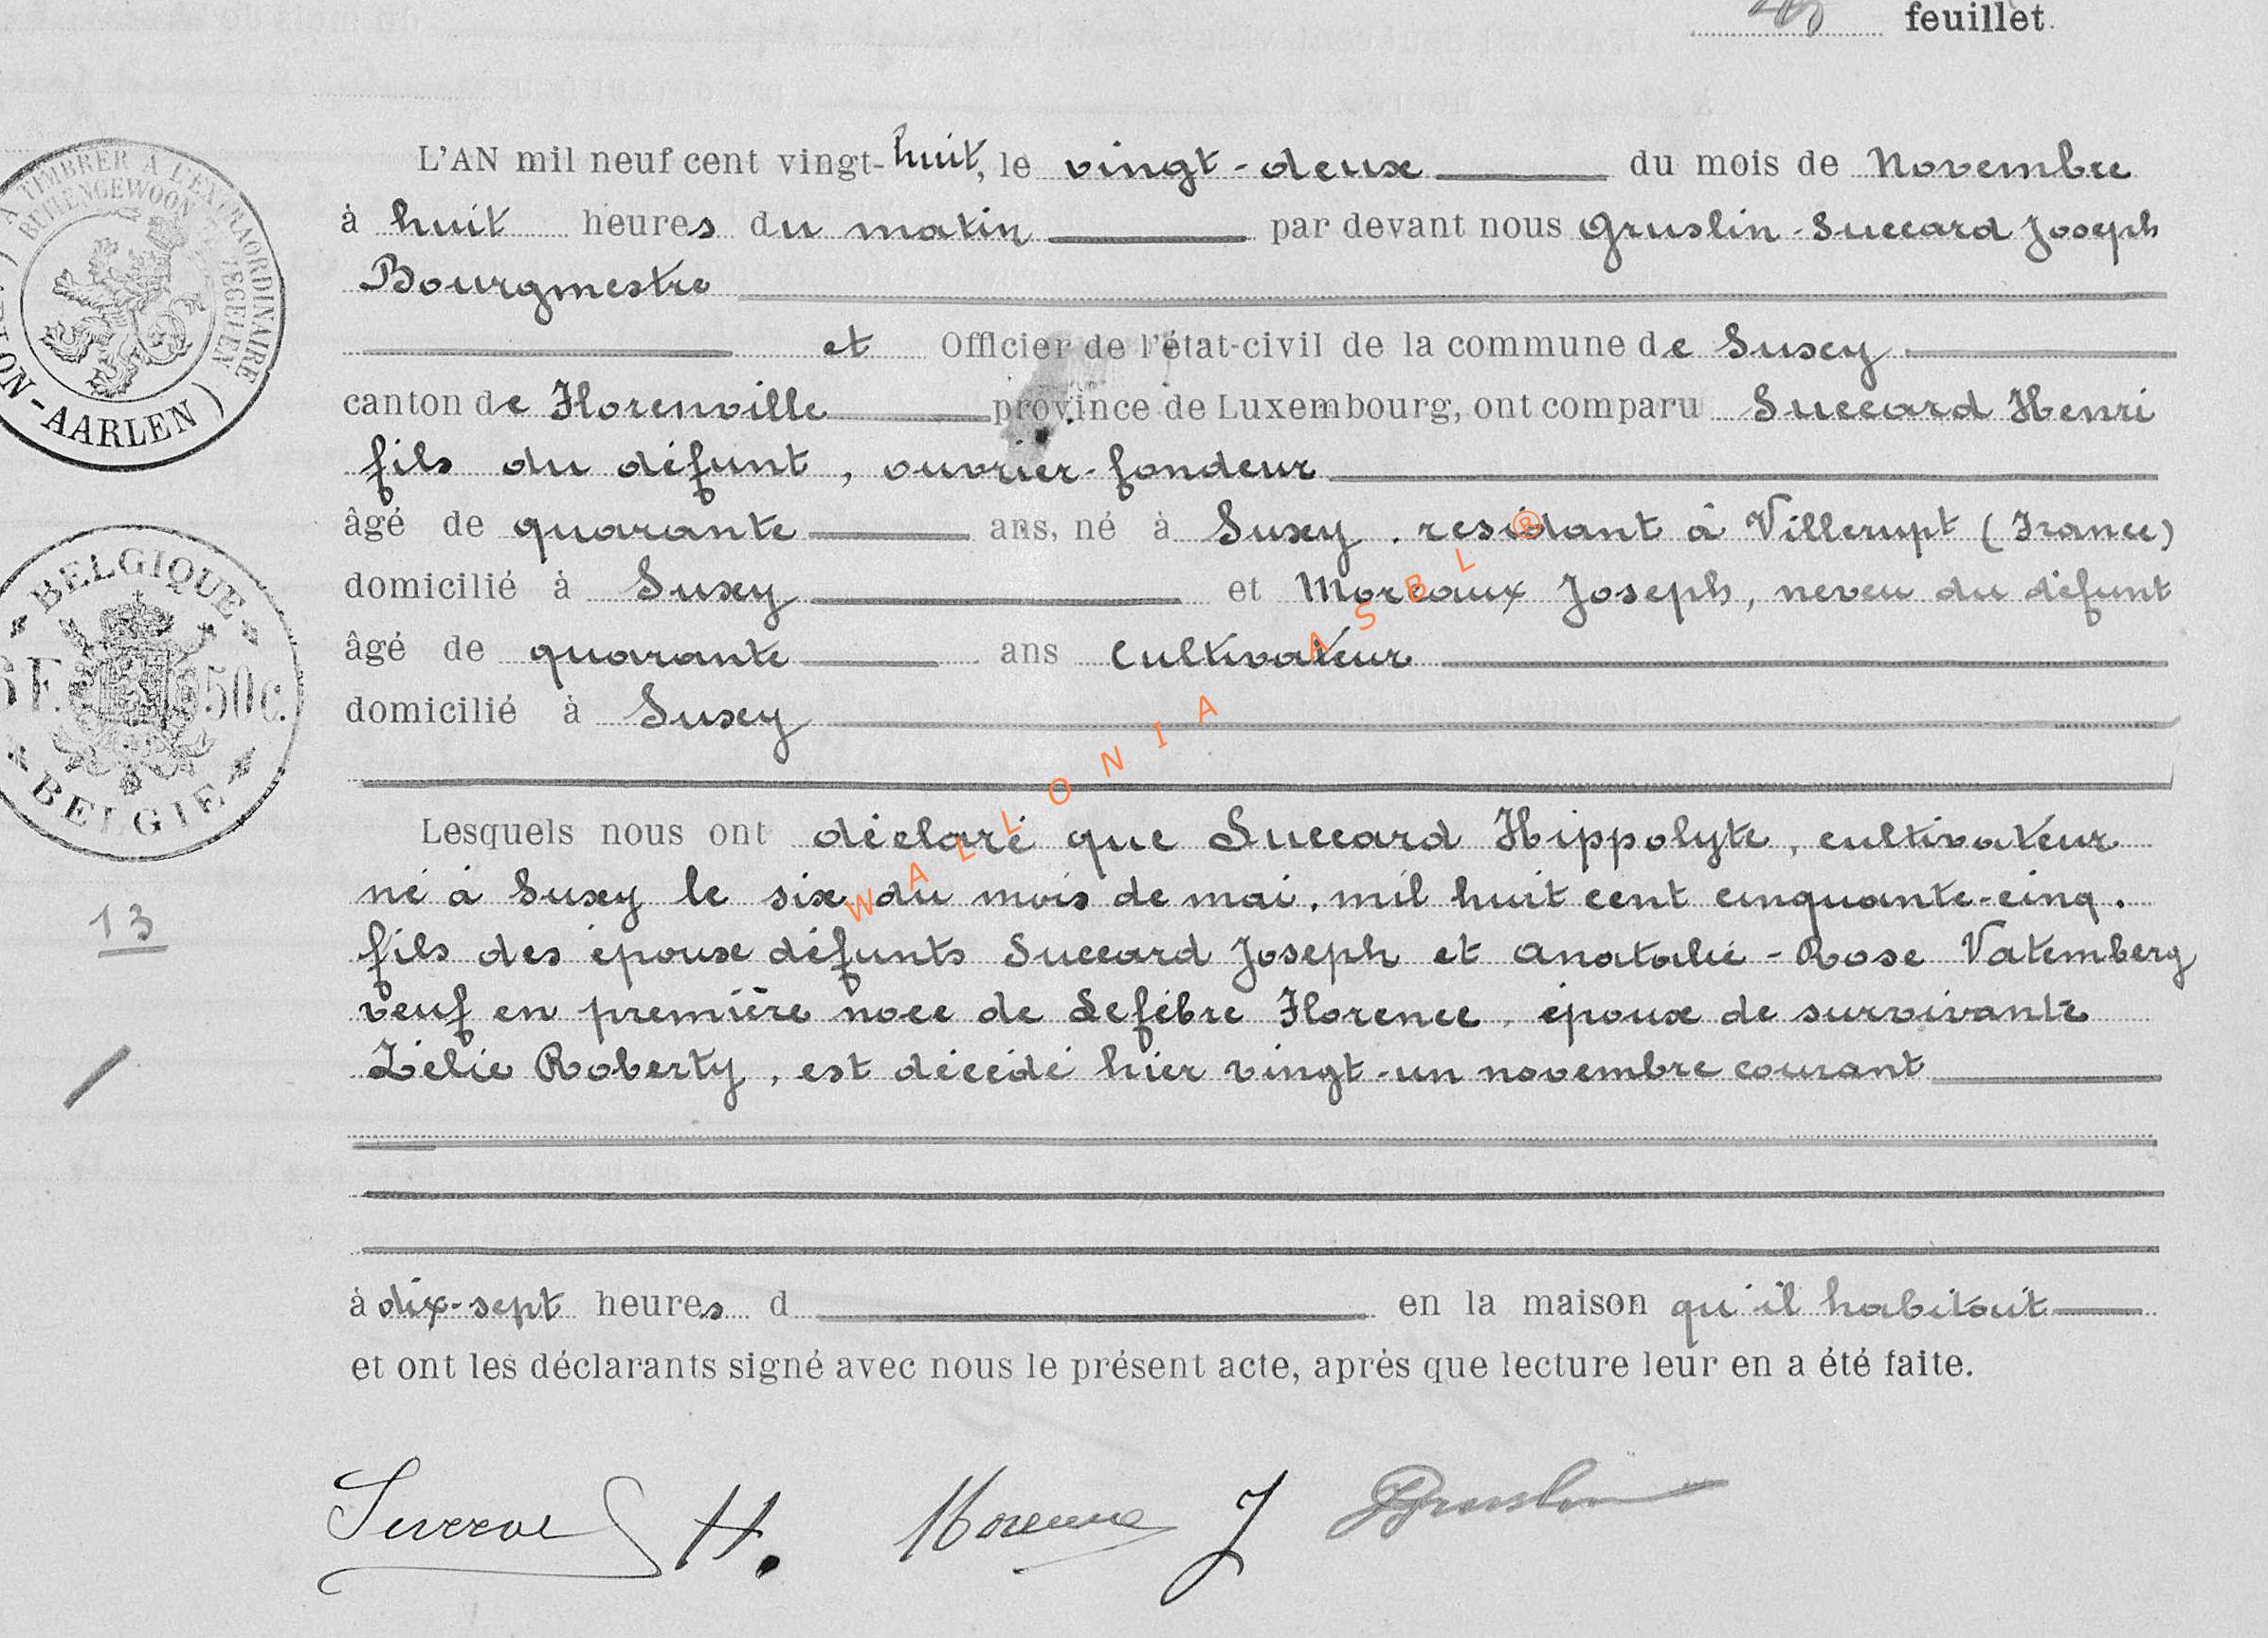 feuillet.
L'AN mil neuf cent vingt-huit, le vingt-deux du mois de Novembre
à huit heures du matin par devant nous Gruslin-Succard Joseph
Bourgmestre
et Officier de l'état-civil de la commune de Suxey
canton de Florenville province de Luxembourg, ont comparu Succard Henri
fils du défunt, ouvrier-fondeur
âgé de quarante ans, né à Suxey. residant à Villerupt (France)
domicilié à Suxey et Moreaux Joseph, neveu du défunt
âgé de quarante ans Cultivateur
domicilié à Suxey
Lesquels nous ont déclaré que Succard Hippolyte, cultivateur
né à Suxey le six du mois de mai, mil huit cent cinquante-cinq.
fils des époux défunts Succard Joseph et Anatalie-Rose Vatemberg
veuf en première noce de Lefèbre Florence, époux de survivante
Zélie Roberty, est décédé hier vingt-un novembre courant
à dix-sept heures d en la maison qu'il habitait
et ont les déclarants signé avec nous le présent acte, après que lecture leur en a été faite.
H. J Gruslin
A TIMBRER A L'EXTRAORDINAIRE
BUITENGEWOON TE ZEGELEN
ON-AARLEN)
BELGIQUE
F. 50c.
BELGIE
13
WALLONIA ASBL ®